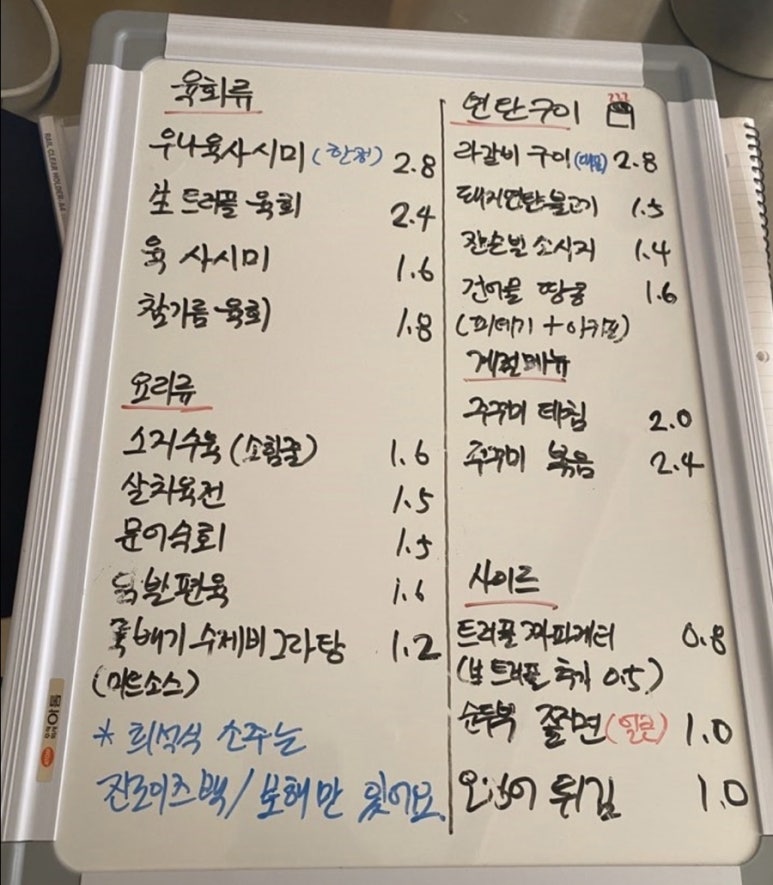 육회류
우나육사시미 (한정) 2.8
生 트러플 육회 2.4
육 사시미 1.6
참기름 육회 1.8
요리류
소지수육 (소힘줄) 1.6
살치육전 1.5
문어숙회 1.5
닭발편육 1.6
뚝배기 수제비 그라탕 1.2
(미트소스)
* 희석식 소주는
진로이즈백 / 보해만 있어요.
연탄구이
라갈비 구이 (매콤) 2.8
돼지연탄불고기 1.5
잔슨빌 소시지 1.4
건어물 땅콩 1.6
(피데기 + 아귀포)
계절메뉴
주꾸미 데침 2.0
쭈꾸미 볶음 2.4
사이드
트러플 짜파게티 0.8
(生 트러플 추가 0.5)
순두부 쫄면 (얼큰) 1.0
오징어 튀김 1.0
RAIL CLEAR HOLDER-A4